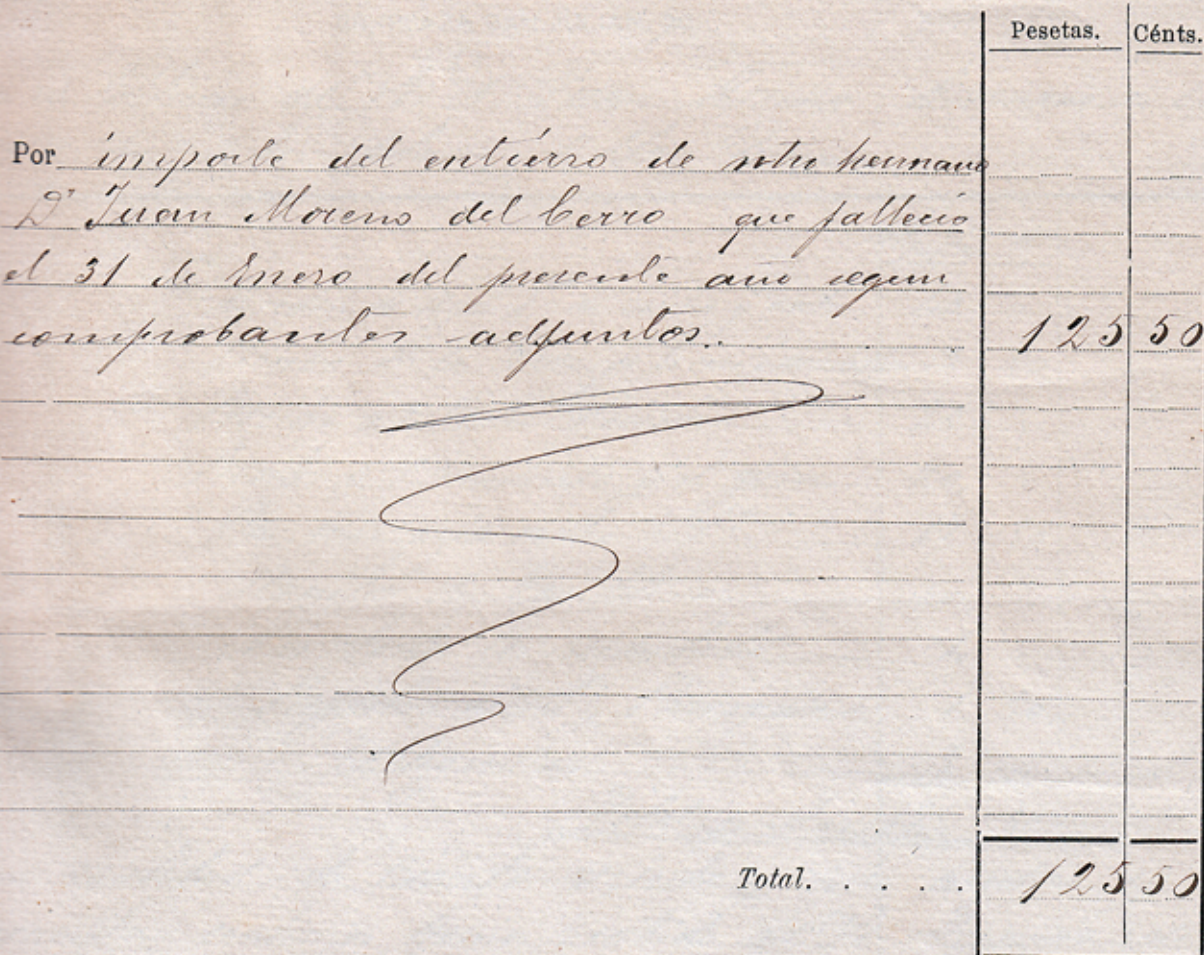 Pesetas. Cénts.
Por importe del entierro de ntro hermano
Dn Juan Moreno del Cerro que fallecio
el 31 de Enero del presente año segun
comprobantes adjuntos. 125 50
Total. . . . . 125 50